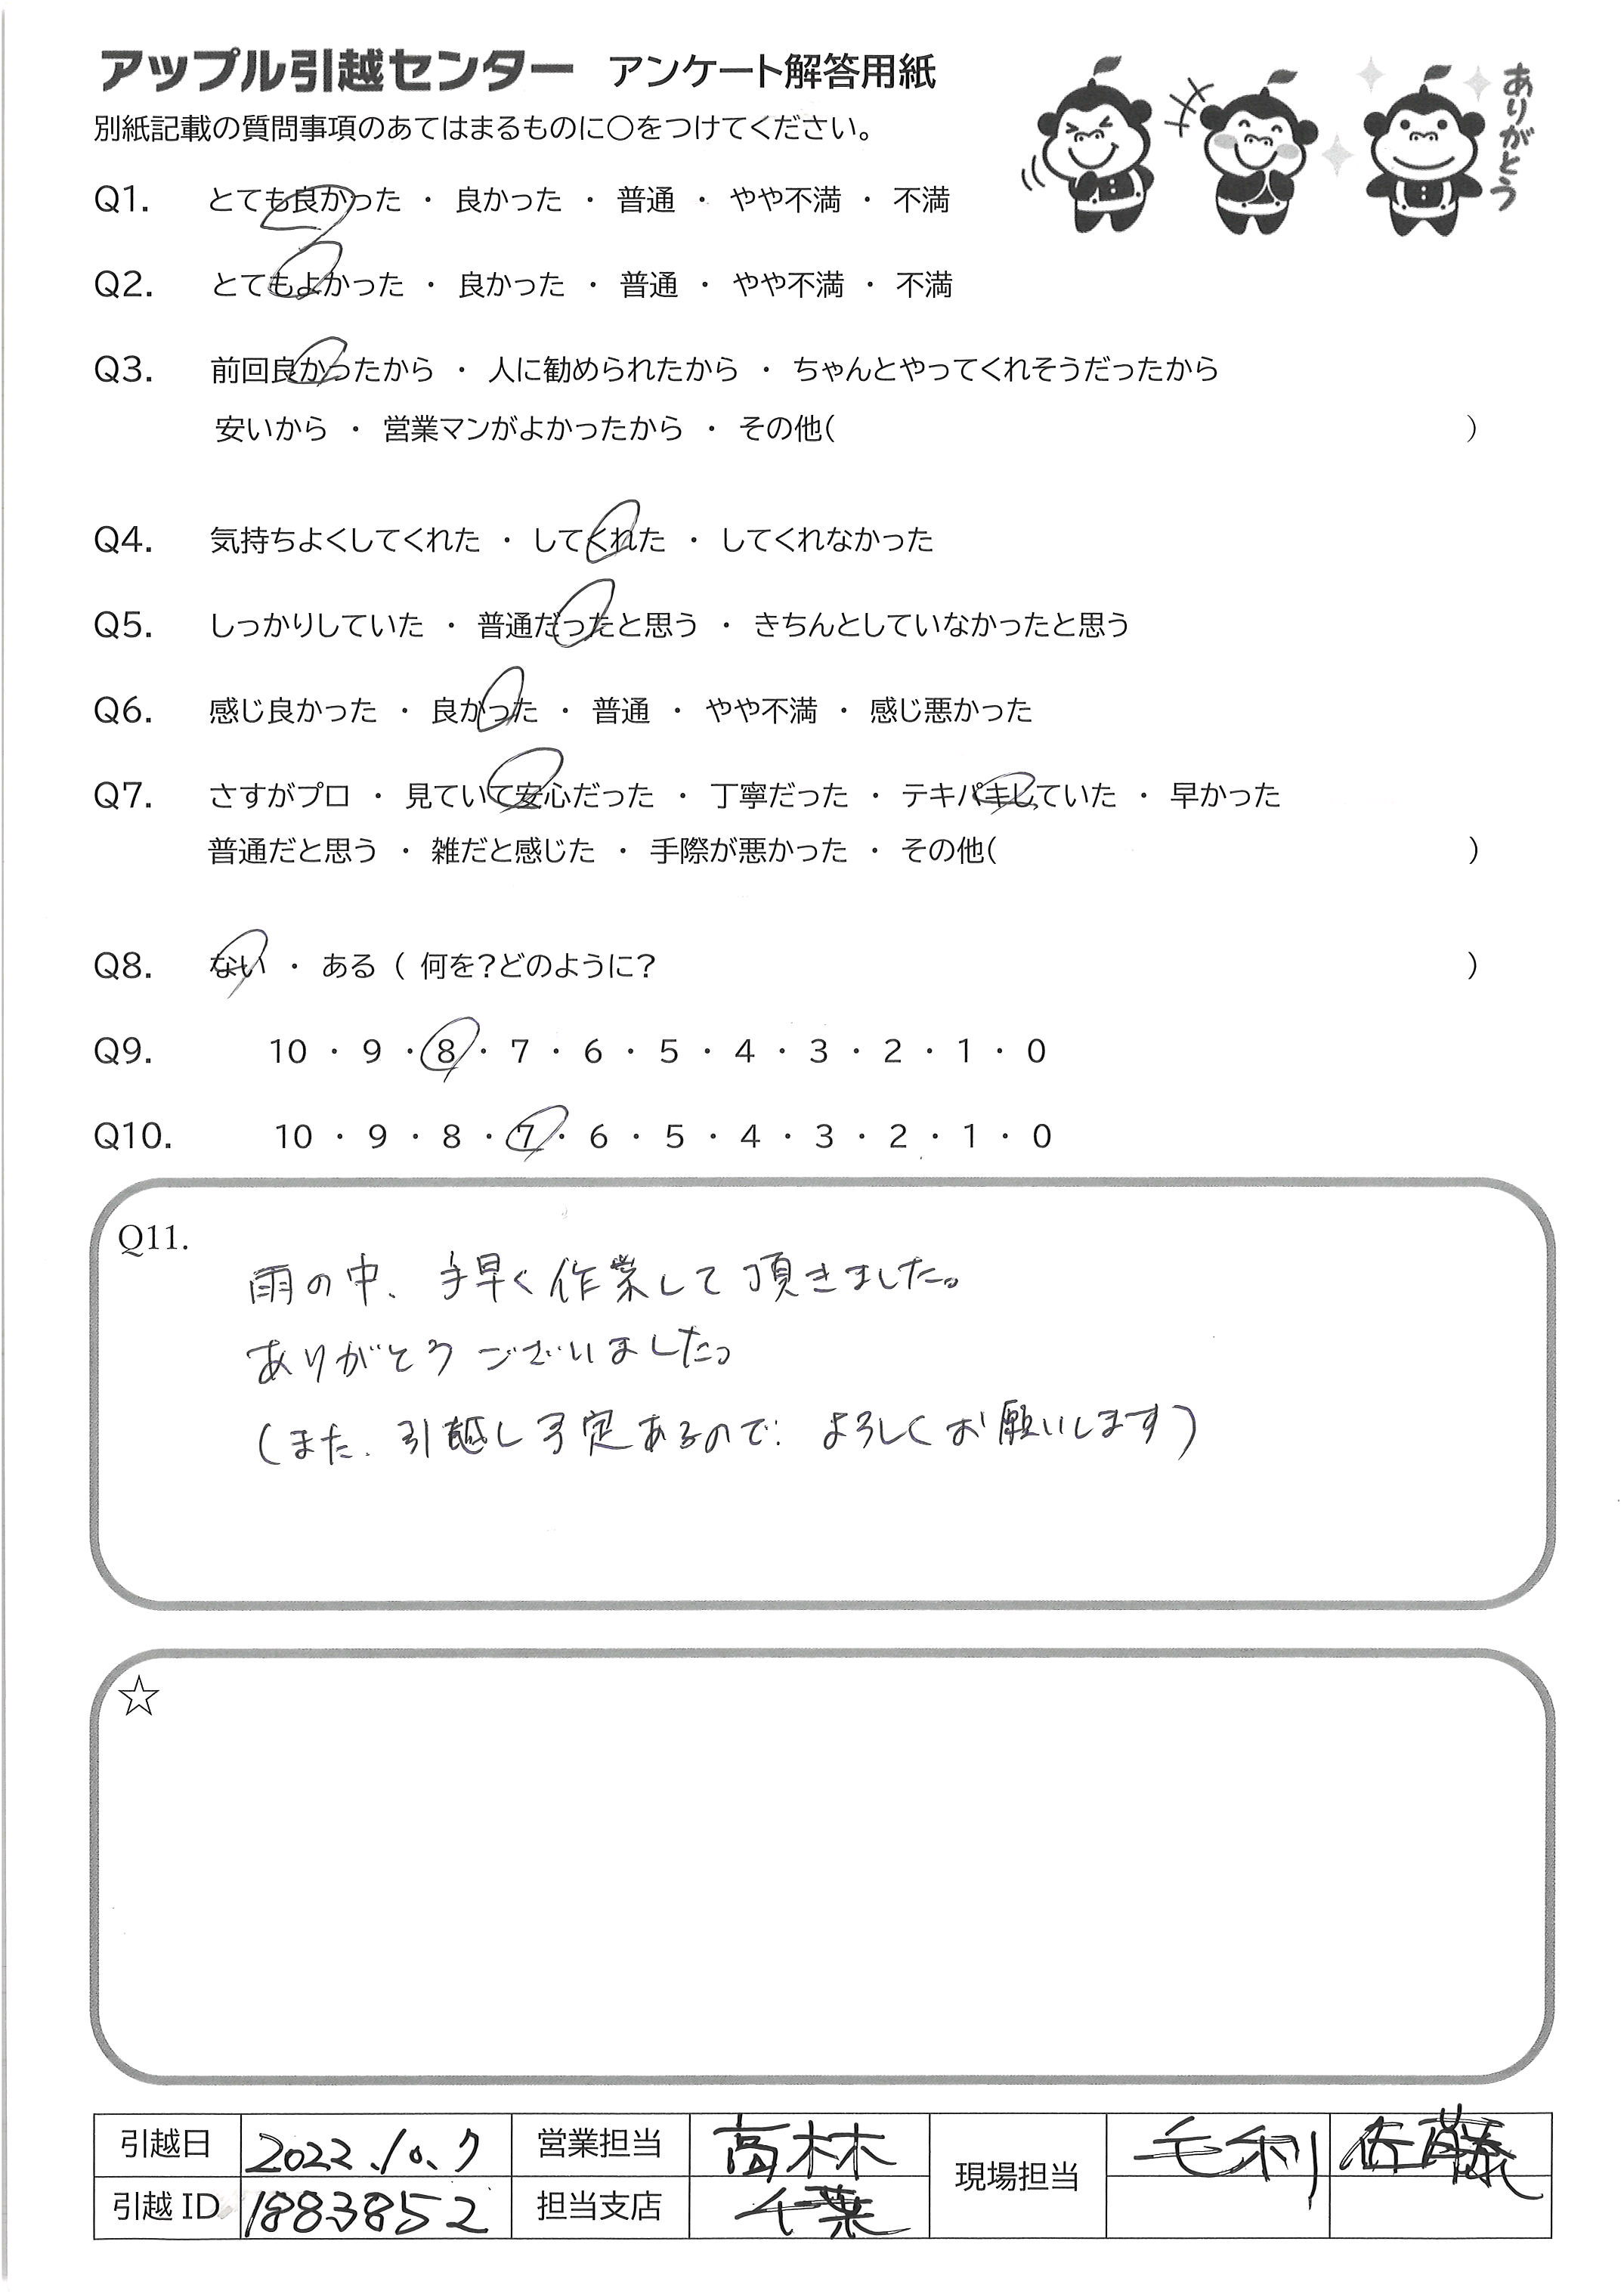 アップル引越センター アンケート解答用紙
ありがとう
別紙記載の質問事項のあてはまるものに〇をつけてください。
Q1. とても良かった ・ 良かった ・ 普通 ・ やや不満 ・ 不満
Q2. とてもよかった ・ 良かった ・ 普通 ・ やや不満 ・ 不満
Q3. 前回良かったから ・ 人に勧められたから ・ ちゃんとやってくれそうだったから
安いから ・ 営業マンがよかったから ・ その他( )
Q4. 気持ちよくしてくれた ・ してくれた ・ してくれなかった
Q5. しっかりしていた ・ 普通だったと思う ・ きちんとしていなかったと思う
Q6. 感じ良かった ・ 良かった ・ 普通 ・ やや不満 ・ 感じ悪かった
Q7. さすがプロ ・ 見ていて安心だった ・ 丁寧だった ・ テキパキしていた ・ 早かった
普通だと思う ・ 雑だと感じた ・ 手際が悪かった ・ その他( )
Q8. ない ・ ある ( 何を?どのように? )
Q9. 10 ・ 9 ・ 8 ・ 7 ・ 6 ・ 5 ・ 4 ・ 3 ・ 2 ・ 1 ・ 0
Q10. 10 ・ 9 ・ 8 ・ 7 ・ 6 ・ 5 ・ 4 ・ 3 ・ 2 ・ 1 ・ 0
Q11.
雨の中、手早く作業して頂きました。
ありがとうございました。
(また、引越し予定あるので、よろしくお願いします)
☆
引越日 2022.10.7 営業担当 高林 現場担当 毛利 佐藤
引越ID 1883852 担当支店 千葉